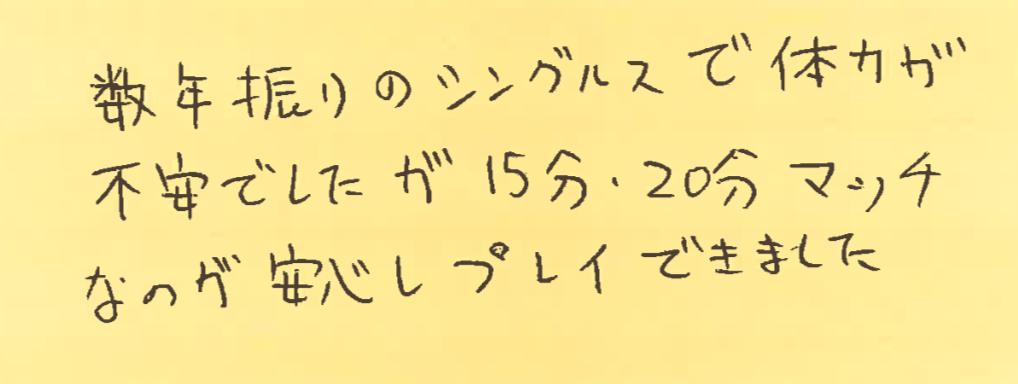 数年振りのシングルスで体力が
不安でしたが15分・20分マッチ
なのが安心しプレイできました